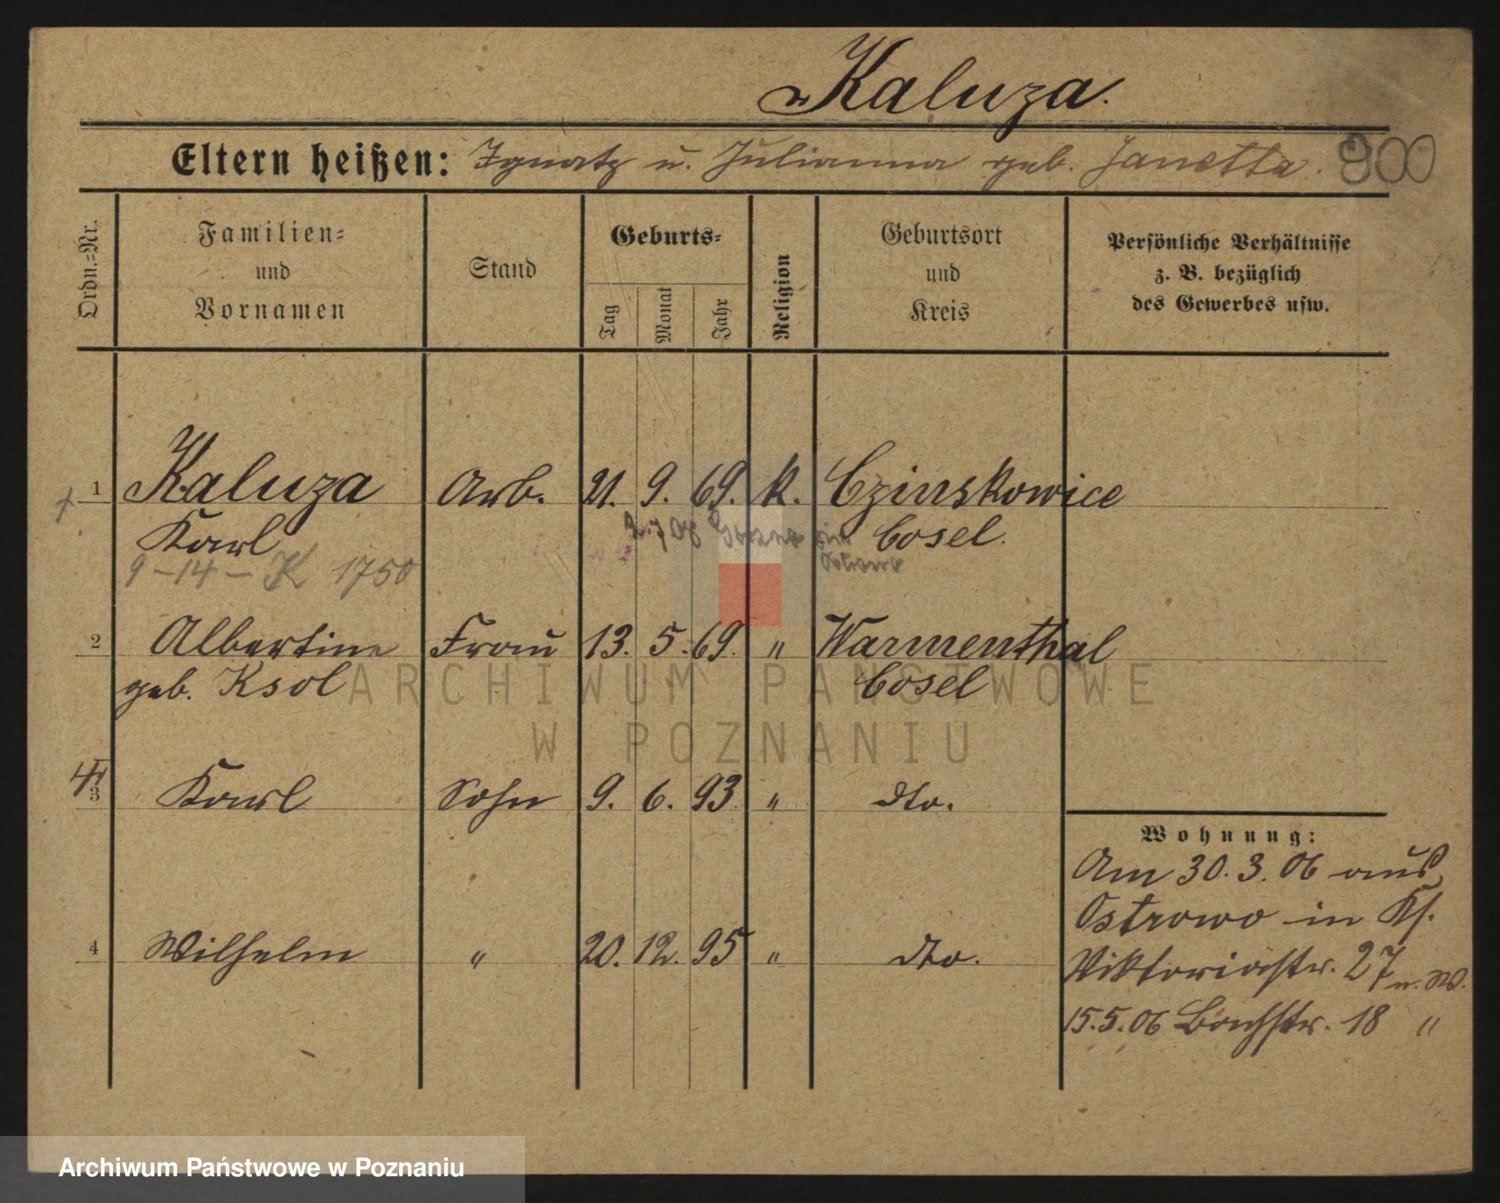 Kaluza.
Eltern heißen: Ignatz u. Julianna geb. Janetta. 900
Ordn.-Nr.
Familien-
und
Vornamen
Stand
Geburts-
Tag
Monat
Jahr
Religion
Geburtsort
und
Kreis
Persönliche Verhältnisse
z. B. bezüglich
des Gewerbes usw.
1 Kaluza Arb. 21. 9. 69. k. Czinskowice
Karl Cosel.
9-14-K 1750
2 Albertine Frau 13. 5. 69. " Warmenthal
geb. Ksol Cosel
3 Karl Sohn 9. 6. 93 " dto.
4 Wilhelm " 20. 12. 95 " dto.
Wohnung:
Am 30.3.06 aus
Ostrowo in Kf.
Viktoriastr. 27 n. W.
15.5.06 Bachstr. 18 "
ARCHIWUM PAŃSTWOWE
W POZNANIU
Archiwum Państwowe w Poznaniu